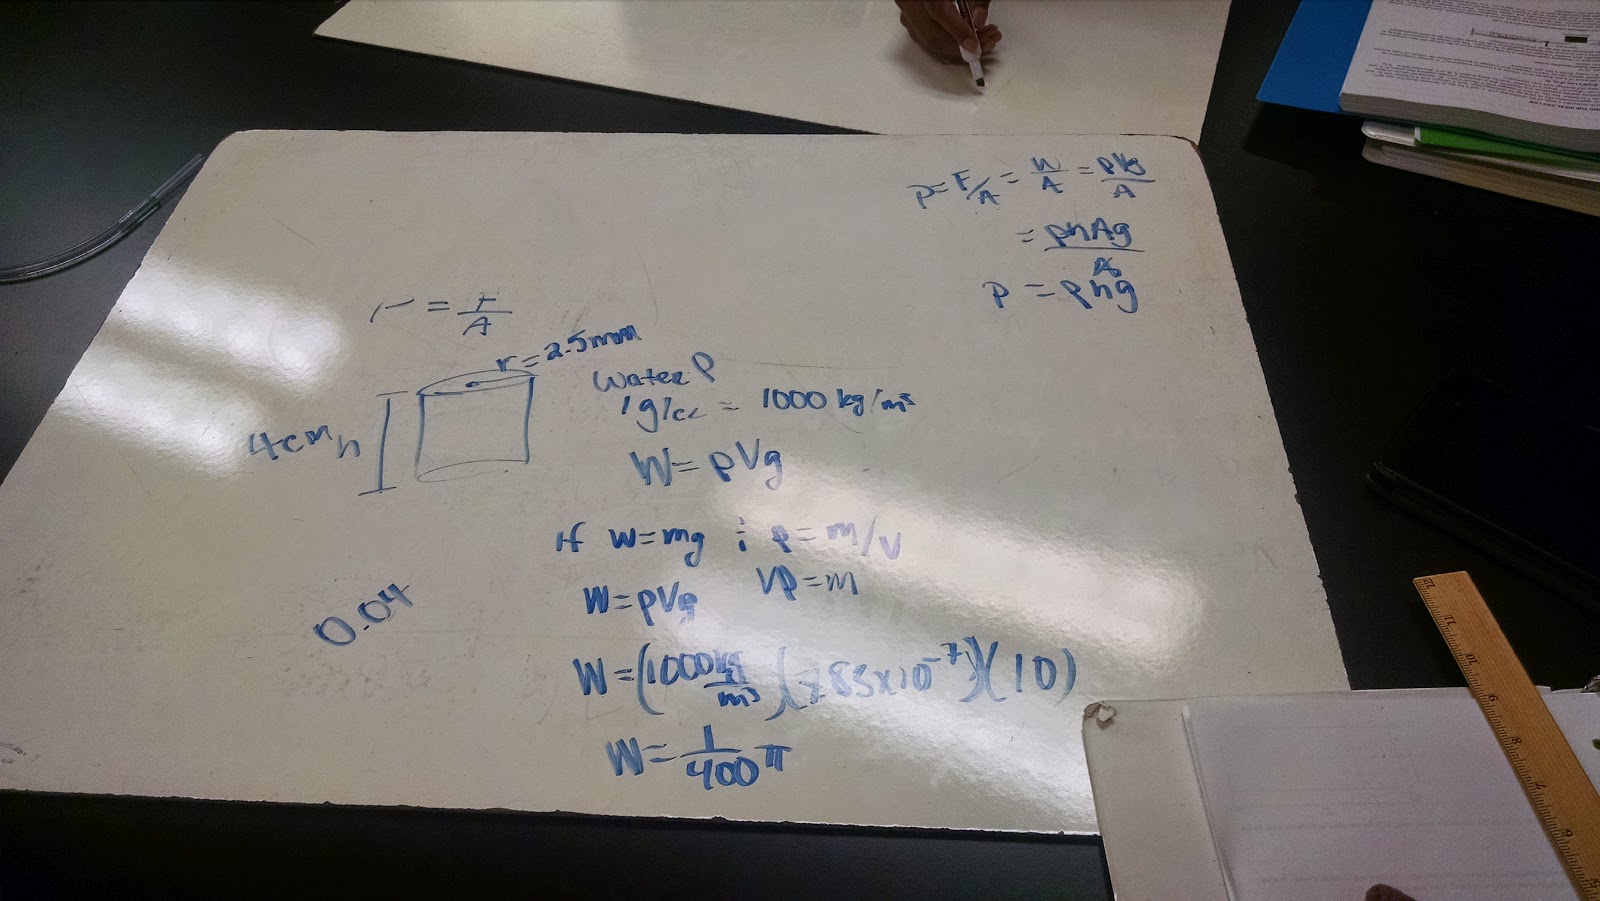 P = F/A = W/A = ρVg/A
= ρhAg/A
P = ρhg
P = F/A
r = 2.5mm
4cm h
Water ρ
1g/cc = 1000 kg/m³
W = ρVg
If W = mg ; ρ = m/V
Vρ = m
W = ρVg
0.04
W = (1000 kg/m³)(7.85x10⁻⁷)(10)
W = 1/400 π
12
11
10
9
8
7
6